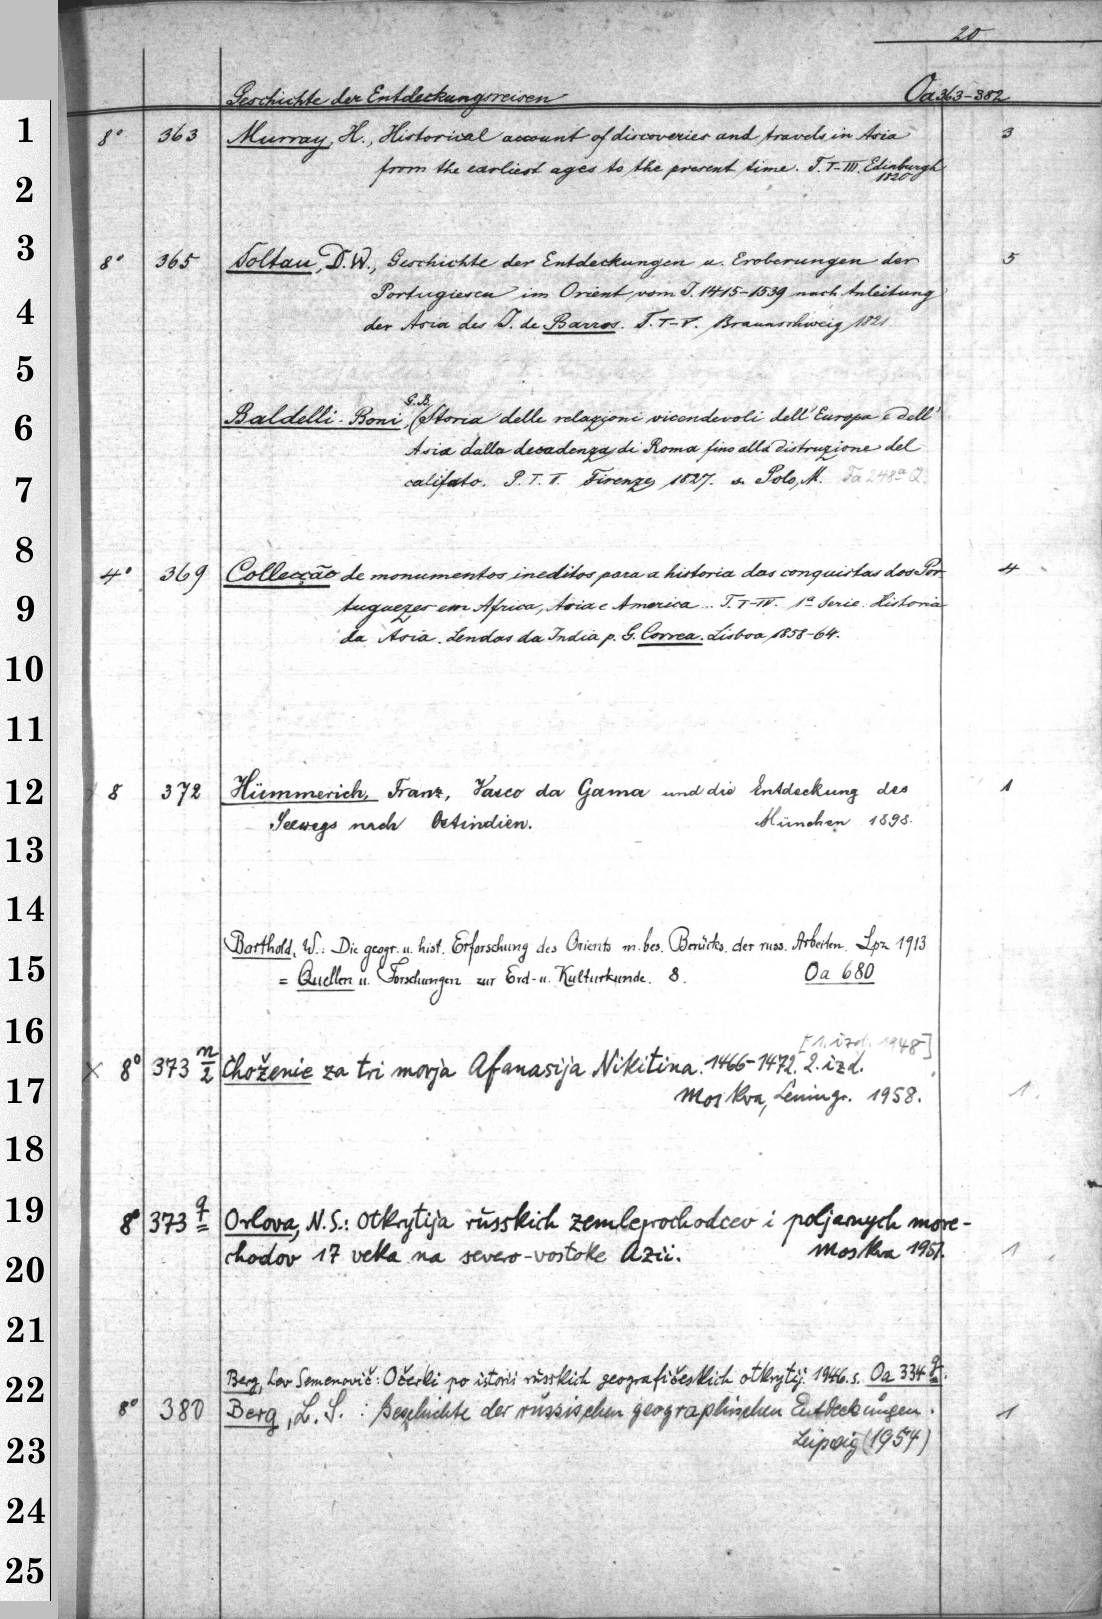 20
Geschichte der Entdeckungsreisen Oa 363-382
1 8° 363 Murray, H., Historical account of discoveries and travels in Asia 3
from the earliest ages to the present time. T. I-III. Edinburgh
2 1820
3 8° 365 Soltau, D. W., Geschichte der Entdeckungen u. Eroberungen der 5
Portugiesen im Orient vom J. 1415-1539 nach Anleitung
4 der Asia des J. de Barros. T. I-V. Braunschweig 1821
5
G. B.
6 Baldelli-Boni, (Storia delle relazioni vicendevoli dell'Europa e dell'
Asia dalla decadenza di Roma fino alla distruzione del
7 califato. P. I. II. Firenze 1827. s. Polo, M. Fa 248ª Q
8 4° 369 Collecção de monumentos ineditos para a historia das conquistas dos Por- 4
9 tuguezes em Africa, Asia e America.. T. I-IV. 1ª Serie. Historia
da Asia. Lendas da India p. G. Correa. Lisboa 1858-64.
10
11
12 8 372 Hümmerich, Franz, Vasco da Gama und die Entdeckung des 1
Seewegs nach Ostindien. München 1898.
13
14
Barthold, W.: Die geogr. u. hist. Erforschung des Orients m. bes. Berücks. der russ. Arbeiten. Lpz 1913
15 = Quellen u. Forschungen zur Erd- u. Kulturkunde. 8. Oa 680
16 [1. izd. 1948]
× 8° 373 n/2 Choženie za tri morja Afanasija Nikitina. 1466-1472. 2. izd.
17 Moskva, Leningr. 1958. 1.
18
19 8° 373 q Orlova, N. S.: Otkrytija russkich zemleprochodcev i poljarnych more-
chodov 17 veka na severo-vostoke Azii. Moskva 1951. 1
20
21
22 Berg, Lev Semenovič: Očerki po istorii russkich geografičeskich otkrytij. 1946. s. Oa 334 q.
8° 380 Berg, L. S.: Geschichte der russischen geographischen Entdeckungen. 1
23 Leipzig (1954)
24
25